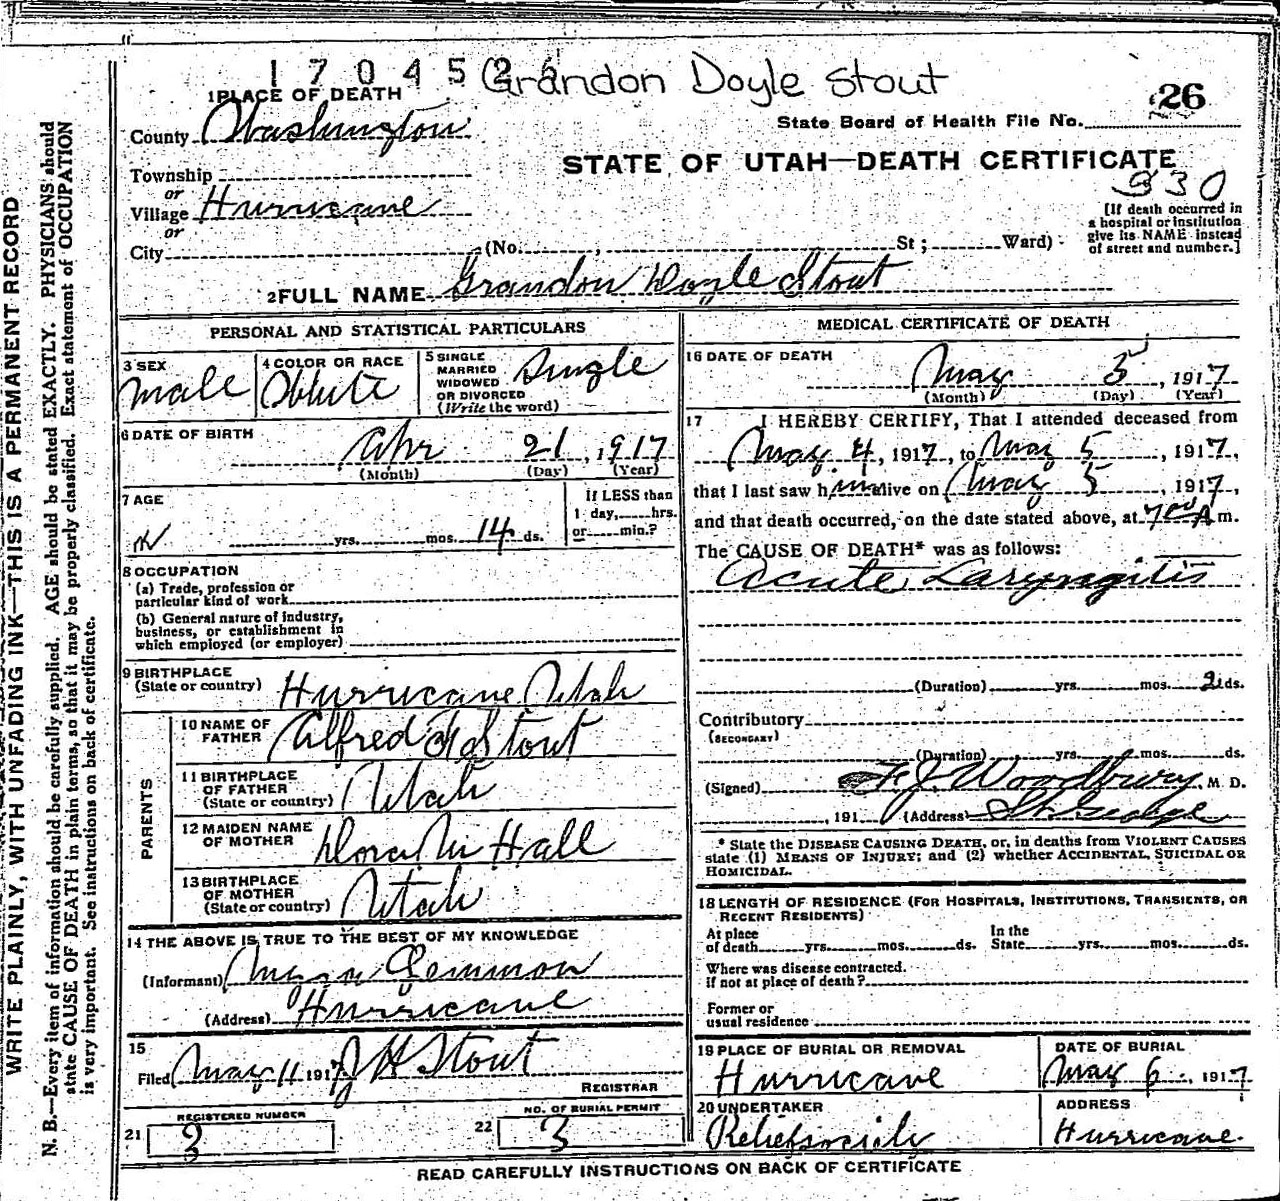 1704526 Grandon Doyle Stout
1 PLACE OF DEATH
County Washington
State Board of Health File No. 26
STATE OF UTAH—DEATH CERTIFICATE
930
Township
or
Village Hurricane
or
City (No. , St ; Ward)
[If death occurred in
a hospital or institution
give its NAME instead
of street and number.]
2 FULL NAME Grandon Doyle Stout
PERSONAL AND STATISTICAL PARTICULARS
3 SEX
male
4 COLOR OR RACE
White
5 SINGLE
MARRIED
WIDOWED
OR DIVORCED
(Write the word)
Single
6 DATE OF BIRTH
Apr 21, 1917
(Month) (Day) (Year)
7 AGE
yrs. mos. 14 ds.
If LESS than
1 day, hrs.
or min.?
8 OCCUPATION
(a) Trade, profession or
particular kind of work
(b) General nature of industry,
business, or establishment in
which employed (or employer)
9 BIRTHPLACE
(State or country) Hurricane Utah
PARENTS
10 NAME OF
FATHER Alfred Stout
11 BIRTHPLACE
OF FATHER
(State or country) Utah
12 MAIDEN NAME
OF MOTHER Dora Hall
13 BIRTHPLACE
OF MOTHER
(State or country) Utah
14 THE ABOVE IS TRUE TO THE BEST OF MY KNOWLEDGE
(Informant) Lemmon
(Address) Hurricane
15
Filed May 11 1917 J H Stout
REGISTRAR
REGISTERED NUMBER
21 3
NO. OF BURIAL PERMIT
22 3
MEDICAL CERTIFICATE OF DEATH
16 DATE OF DEATH
May 5, 1917
(Month) (Day) (Year)
17 I HEREBY CERTIFY, That I attended deceased from
May 4, 1917, to May 5, 1917,
that I last saw him alive on May 5, 1917,
and that death occurred, on the date stated above, at 7 00 A m.
The CAUSE OF DEATH* was as follows:
Acute Laryngitis
(Duration) yrs. mos. 2 ds.
Contributory
(SECONDARY)
(Duration) yrs. mos. ds.
(Signed) F. J. Woodbury, M. D.
, 191 (Address) St. George
* State the DISEASE CAUSING DEATH, or, in deaths from VIOLENT CAUSES
state (1) MEANS OF INJURY; and (2) whether ACCIDENTAL, SUICIDAL OR
HOMICIDAL.
18 LENGTH OF RESIDENCE (FOR HOSPITALS, INSTITUTIONS, TRANSIENTS, OR
RECENT RESIDENTS)
At place
of death yrs. mos. ds.
In the
State yrs. mos. ds.
Where was disease contracted.
if not at place of death?
Former or
usual residence
19 PLACE OF BURIAL OR REMOVAL
Hurricane
DATE OF BURIAL
May 6, 1917
20 UNDERTAKER
Relief society
ADDRESS
Hurricane
READ CAREFULLY INSTRUCTIONS ON BACK OF CERTIFICATE
WRITE PLAINLY, WITH UNFADING INK—THIS IS A PERMANENT RECORD
N. B.—Every item of information should be carefully supplied. AGE should be stated EXACTLY. PHYSICIANS should
state CAUSE OF DEATH in plain terms, so that it may be properly classified. Exact statement of OCCUPATION
is very important. See instructions on back of certificate.